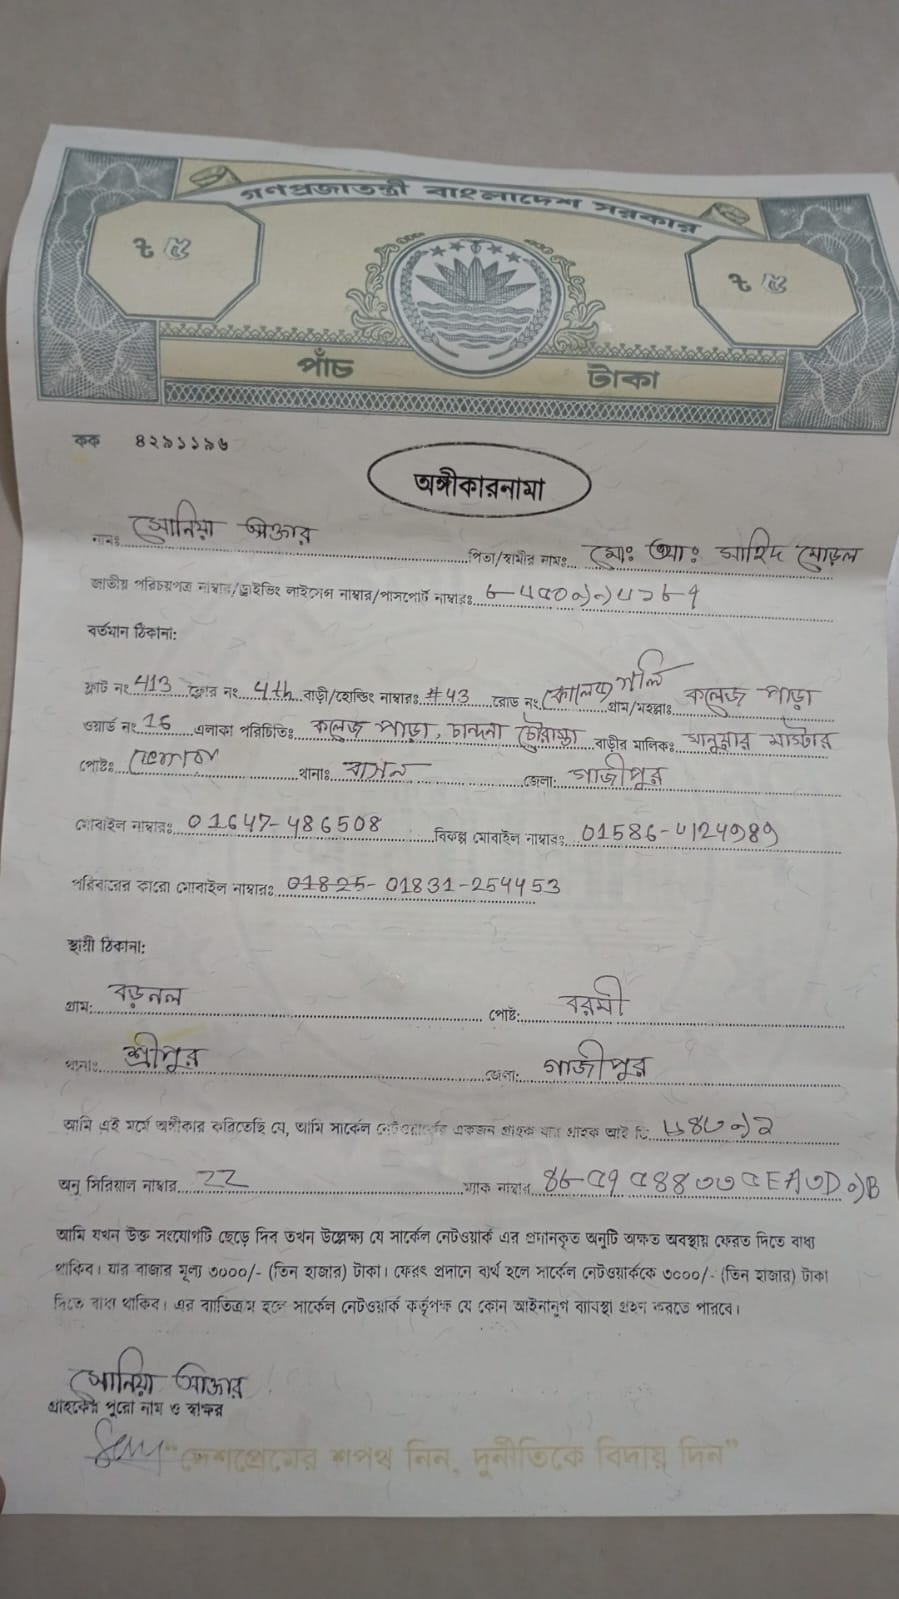 গণপ্রজাতন্ত্রী বাংলাদেশ সরকার
৳ ৫ ৳ ৫
পাঁচ টাকা
কক ৪২৯১১৯৬
অঙ্গীকারনামা
নামঃ সোনিয়া আক্তার পিতা/স্বামীর নামঃ মোঃ আঃ সাহিদ মোড়ল
জাতীয় পরিচয়পত্র নাম্বার/ড্রাইভিং লাইসেন্স নাম্বার/পাসপোর্ট নাম্বারঃ
বর্তমান ঠিকানা:
ফ্লাট নং 413 ফ্লোর নং 4th বাড়ী/হোল্ডিং নাম্বারঃ #43 রোড নং (কলেজ গলি গ্রাম/মহল্লাঃ কলেজ পাড়া
ওয়ার্ড নং 16 এলাকা পরিচিতিঃ কলেজ পাড়া, চান্দনা চৌরাস্তা বাড়ীর মালিকঃ মাস্টার
পোষ্টঃ থানাঃ বাসন জেলা: গাজীপুর
মোবাইল নাম্বারঃ 01647-486508 বিকল্প মোবাইল নাম্বারঃ
পরিবারের কারো মোবাইল নাম্বারঃ 01825- 01831-254453
স্থায়ী ঠিকানা:
গ্রাম: বড়নল পোষ্ট: বরমী
থানাঃ শ্রীপুর জেলা: গাজীপুর
আমি এই মর্মে অঙ্গীকার করিতেছি যে, আমি সার্কেল নেটওয়ার্কের একজন গ্রাহক যার গ্রাহক আই ডি:
অনু সিরিয়াল নাম্বার 22 ম্যাক নাম্বার
আমি যখন উক্ত সংযোগটি ছেড়ে দিব তখন উল্লেক্ষ্য যে সার্কেল নেটওয়ার্ক এর প্রদানকৃত অনুটি অক্ষত অবস্থায় ফেরত দিতে বাধ্য
থাকিব। যার বাজার মূল্য ৩০০০/- (তিন হাজার) টাকা। ফেরৎ প্রদানে ব্যর্থ হলে সার্কেল নেটওয়ার্ককে ৩০০০/- (তিন হাজার) টাকা
দিতে বাধ্য থাকিব। এর ব্যতিক্রম হলে সার্কেল নেটওয়ার্ক কর্তৃপক্ষ যে কোন আইনানুগ ব্যাবস্থা গ্রহণ করতে পারবে।
সোনিয়া আক্তার
গ্রাহকের পুরো নাম ও স্বাক্ষর
"দেশপ্রেমের শপথ নিন, দুর্নীতিকে বিদায় দিন"